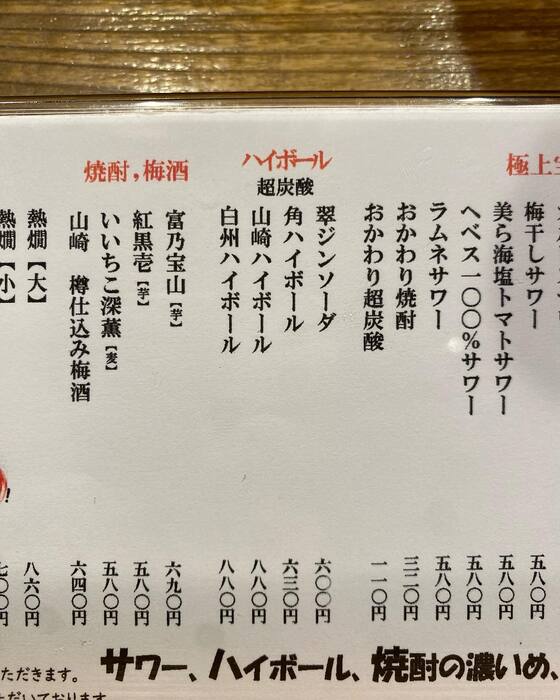 極上
梅干しサワー 五八〇円
美ら海塩トマトサワー 五八〇円
ヘベス一〇〇%サワー 五八〇円
ラムネサワー 五八〇円
おかわり焼酎 三二〇円
おかわり超炭酸 一一〇円
ハイボール
超炭酸
翠ジンソーダ 六〇〇円
角ハイボール 六三〇円
山崎ハイボール 八八〇円
白州ハイボール 八八〇円
焼酎,梅酒
富乃宝山【芋】 六九〇円
紅黒壱【芋】 五八〇円
いいちこ深薫【麦】 五八〇円
山崎 樽仕込み梅酒 六四〇円
熱燗【大】 八六〇円
熱燗【小】 七〇〇円
ただきます。 サワー、ハイボール、焼酎の濃いめ、
ただいております